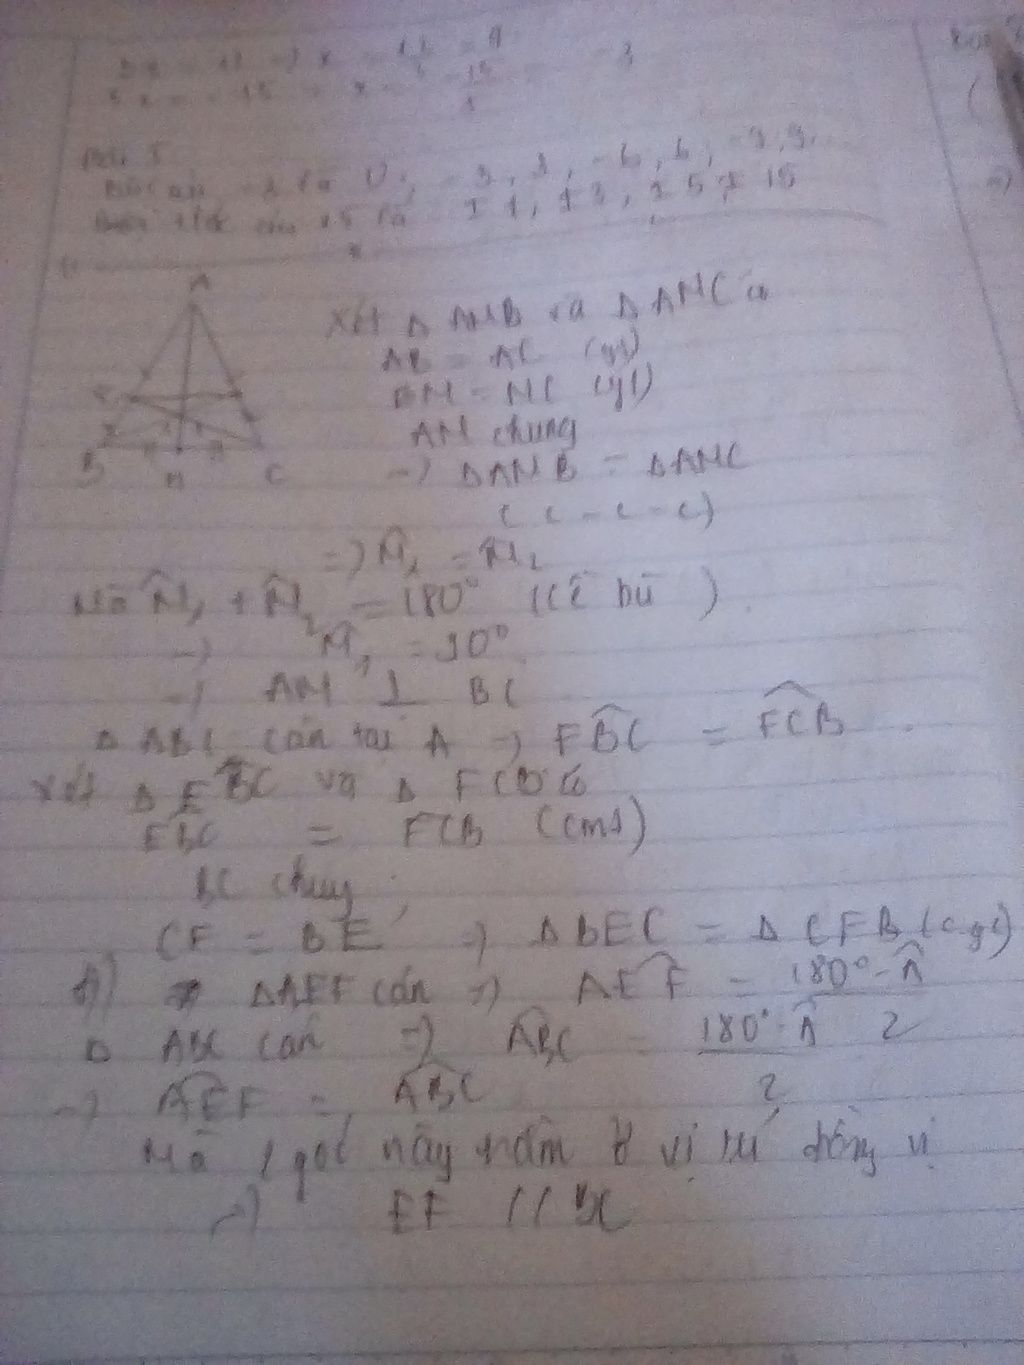 Bài 5
là 0, -3, 3, -6, 6, -9, 9.
15 là ±1, ±3, ±5, ±15
A
B M C
Xét Δ AMB và Δ AMC có
AB = AC (gt)
BM = MC (gt)
AM chung
=) Δ AMB = Δ AMC
(c - c - c)
=) M̂₁ = M̂₂
Mà M̂₁ + M̂₂ = 180° (kề bù)
=) M̂₁ = 90°
=) AM ⊥ BC
Δ ABC cân tại A =) FBC = FCB
Xét Δ EBC và Δ FCB có
EBC = FCB (cmt)
BC chung
CF = BE =) Δ BEC = Δ CFB (c g c)
Δ AEF cân =) AEF = 180° - Â / 2
Δ ABC cân =) ABC = 180° - Â / 2
=) AEF = ABC
Mà góc này nằm ở vị trí đồng vị
=) EF // BC